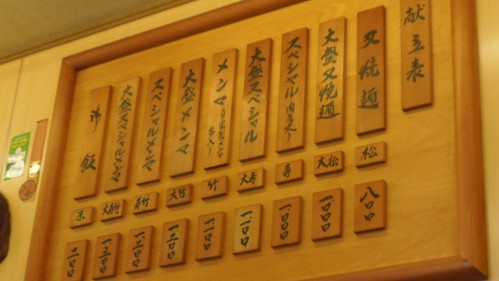 献立表
叉焼麺 松 八〇〇
大盛叉焼麺 大松 一〇〇〇
スペシャル 寿 一〇〇〇
大盛スペシャル 大寿 一二〇〇
メンマ 竹 一一〇〇
大盛メンマ 大竹 一三〇〇
スペシャルメンマ 寿竹 一三〇〇
大盛スペシャルメンマ 大寿竹 一五〇〇
御飯 米 二〇〇